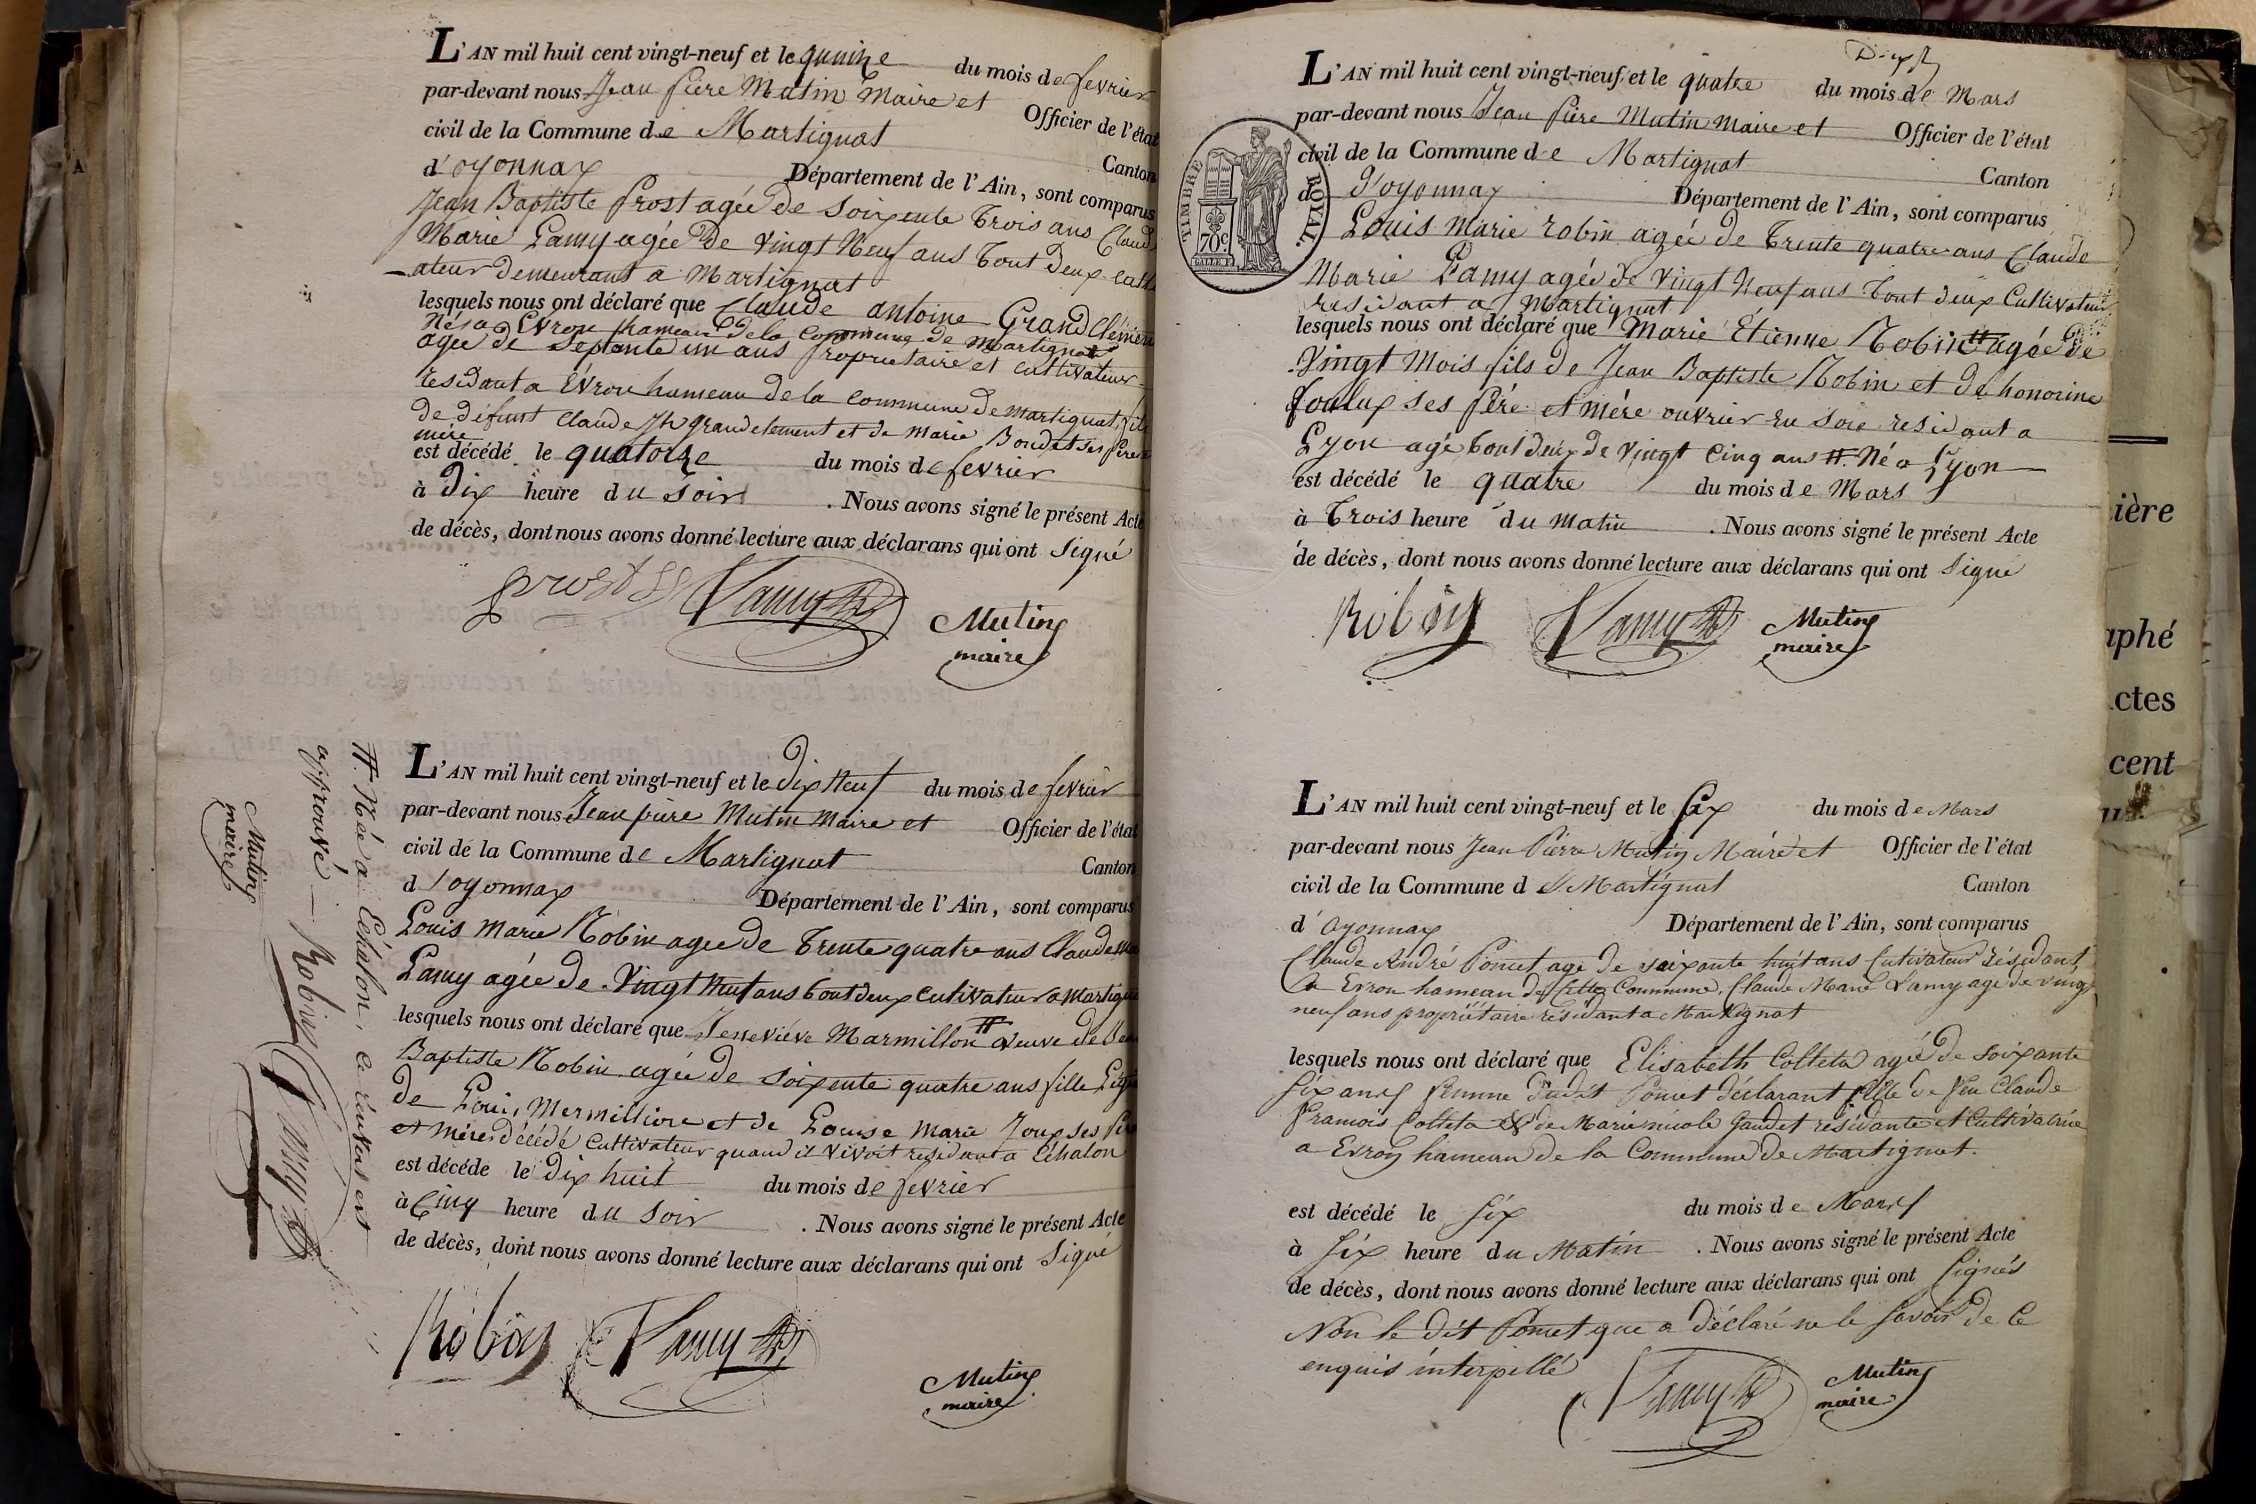 L'AN mil huit cent vingt-neuf et le quinze du mois de fevrier
par-devant nous Jean piere Mutin Maire et Officier de l'état
civil de la Commune de Martignat Canton
d'oyonnax Département de l'Ain, sont comparus
Jean Baptiste Prost agée de soixente Trois ans Claude
Marie Lamy agée de Vingt Neuf ans Tout deux culti
-ateur demeurant a Martignat
lesquels nous ont déclaré que Claude antoine Grand Clément
Né a Evron hameau de la Commune de Martignat
agée de septante un ans proprietaire et cultivateur
residant a Evron hameau de la Commune de Martignat, fils
de défunt Claude Jh grandclement et de Marie Boudet ses père
mère
est décédé le quatorze du mois de fevrier
à Dix heure du soir . Nous avons signé le présent Acte
de décès, dont nous avons donné lecture aux déclarans qui ont Signé
prost Lamy
Mutin
maire
L'AN mil huit cent vingt-neuf et le Dix Neuf du mois de fevrier
par-devant nous Jean piere Mutin Maire et Officier de l'état
civil de la Commune de Martignat Canton
d'oyonnax Département de l'Ain, sont comparus
Louis Marie Robin agée de Trente quatre ans Claude
Lamy agée de Vingt Neuf ans Tout deux cultivateur a Martignat
lesquels nous ont déclaré que Jenneviéve Marmillon # veuve de Jean
Baptiste Robin agée de soixente quatre ans fille
de Louis Mermillion et de Louise Marie Joux ses père
et mère décédé cultivateur quand il vivoit residant a Echalon
est décédé le Dix huit du mois de fevrier
à Cinq heure du soir . Nous avons signé le présent Acte
de décès, dont nous avons donné lecture aux déclarans qui ont Signé
Robin Lamy
Mutin
maire
#. Née a Echalon, le renvoi est
approuvé — Robin Lamy
Mutin
maire
L'AN mil huit cent vingt-neuf et le quatre du mois de Mars
par-devant nous Jean piere Mutin Maire et Officier de l'état
civil de la Commune de Martignat Canton
d d'oyonnax Département de l'Ain, sont comparus
TIMBRE ROYAL.
70c.
Louis Marie robin agée de Trente quatre ans Claude
Marie Lamy agée de Vingt Neuf ans Tout deux Cultivateur
residant a Martignat
lesquels nous ont déclaré que Marie Étienne Robin # agée de
Vingt Mois fils de Jean Baptiste Robin et de honorine
foulux ses Pére et Mére ouvrier en Soie residant a
Lyon agé tout deux de Vingt Cinq ans #. Né a Lyon
est décédé le quatre du mois de Mars
à Trois heure du Matin . Nous avons signé le présent Acte
de décès, dont nous avons donné lecture aux déclarans qui ont Signé
Robin Lamy
Mutin
maire
L'AN mil huit cent vingt-neuf et le Six du mois de Mars
par-devant nous Jean Pierre Mutin Maire et Officier de l'état
civil de la Commune de Martignat Canton
d'oyonnax Département de l'Ain, sont comparus
Claude André Poncet agé de soixante huit ans Cultivateur résidant
a Evron hameau de cette Commune, Claude Marie Lamy agé de vingt
neuf ans propriétaire résidant a Martignat
lesquels nous ont déclaré que Elisabeth Colleta agée de soixante
six ans femme dudit Poncet déclarant fille de feu Claude
François Colleta & de Marie nicole Gaudet résidante et Cultivatrice
a Evron hameau de la Commune de Martignat.
est décédé le Six du mois de Mars
à Six heure du Matin . Nous avons signé le présent Acte
de décès, dont nous avons donné lecture aux déclarans qui ont Signés
Non le dit Poncet que a déclaré ne le savoir de ce
enquis interpellé
Lamy
Mutin
maire
ière
aphé
ctes
cent